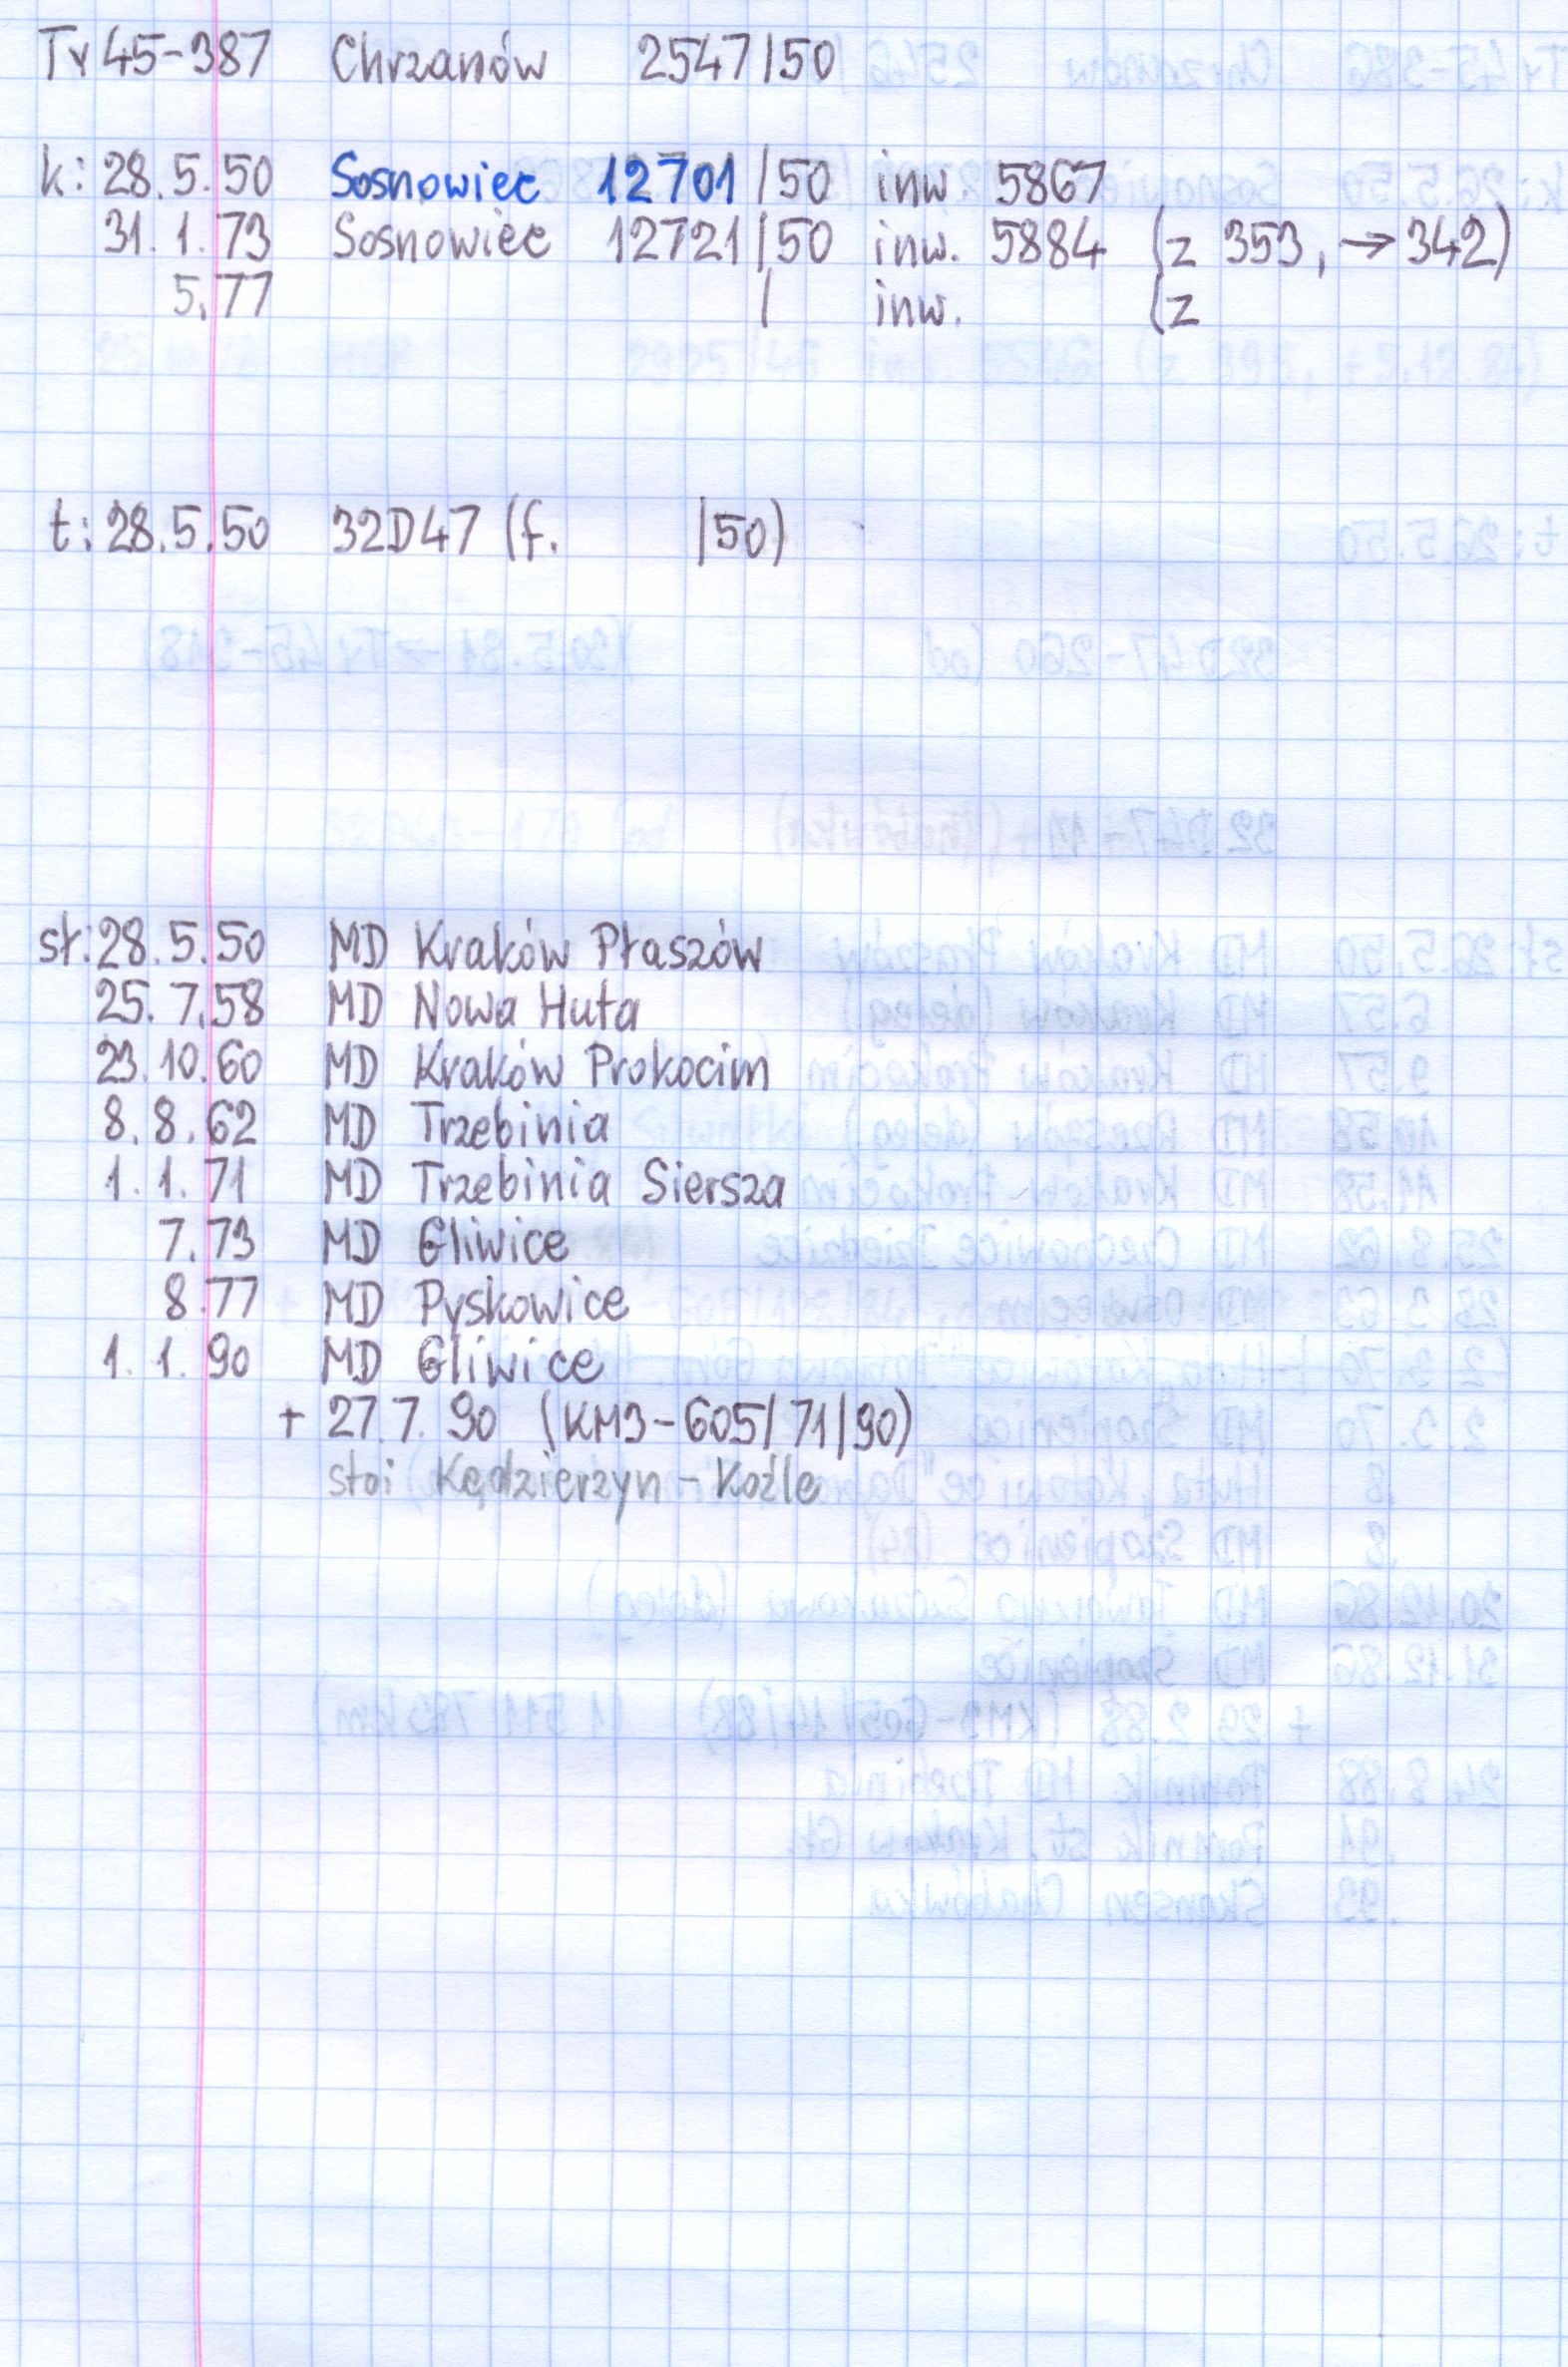 Ty45-387 Chrzanów 2547/50
k: 28.5.50 Sosnowiec 12701/50 inw. 5867
31.1.73 Sosnowiec 12721/50 inw. 5884 (z 353, → 342)
5.77 / inw. (z
t: 28.5.50 32D47 (f. /50)
st: 28.5.50 MD Kraków Płaszów
25.7.58 MD Nowa Huta
23.10.60 MD Kraków Prokocim
8.8.62 MD Trzebinia
1.1.71 MD Trzebinia Siersza
7.73 MD Gliwice
8.77 MD Pyskowice
1.1.90 MD Gliwice
+ 27.7.90 (KM3-605/71/90)
stoi Kędzierzyn-Koźle